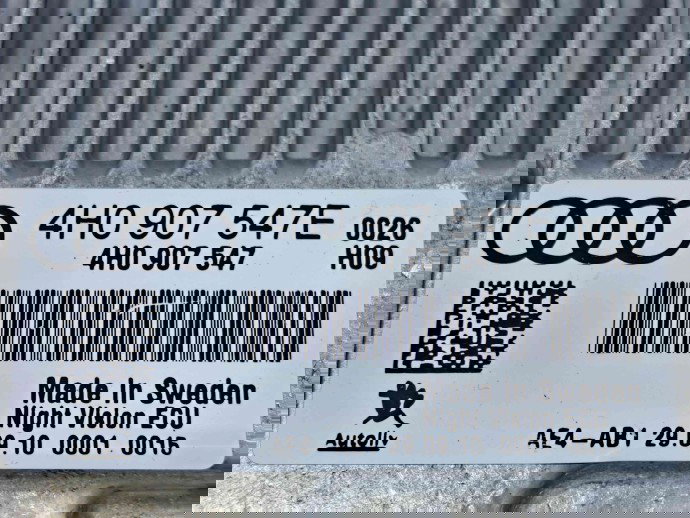 4H0 907 547E
0026
4H0 907 547
H09
Made in Sweden
Night Vision ECU
Autoliv
AE4-AB1 29.09.10 0001 0016